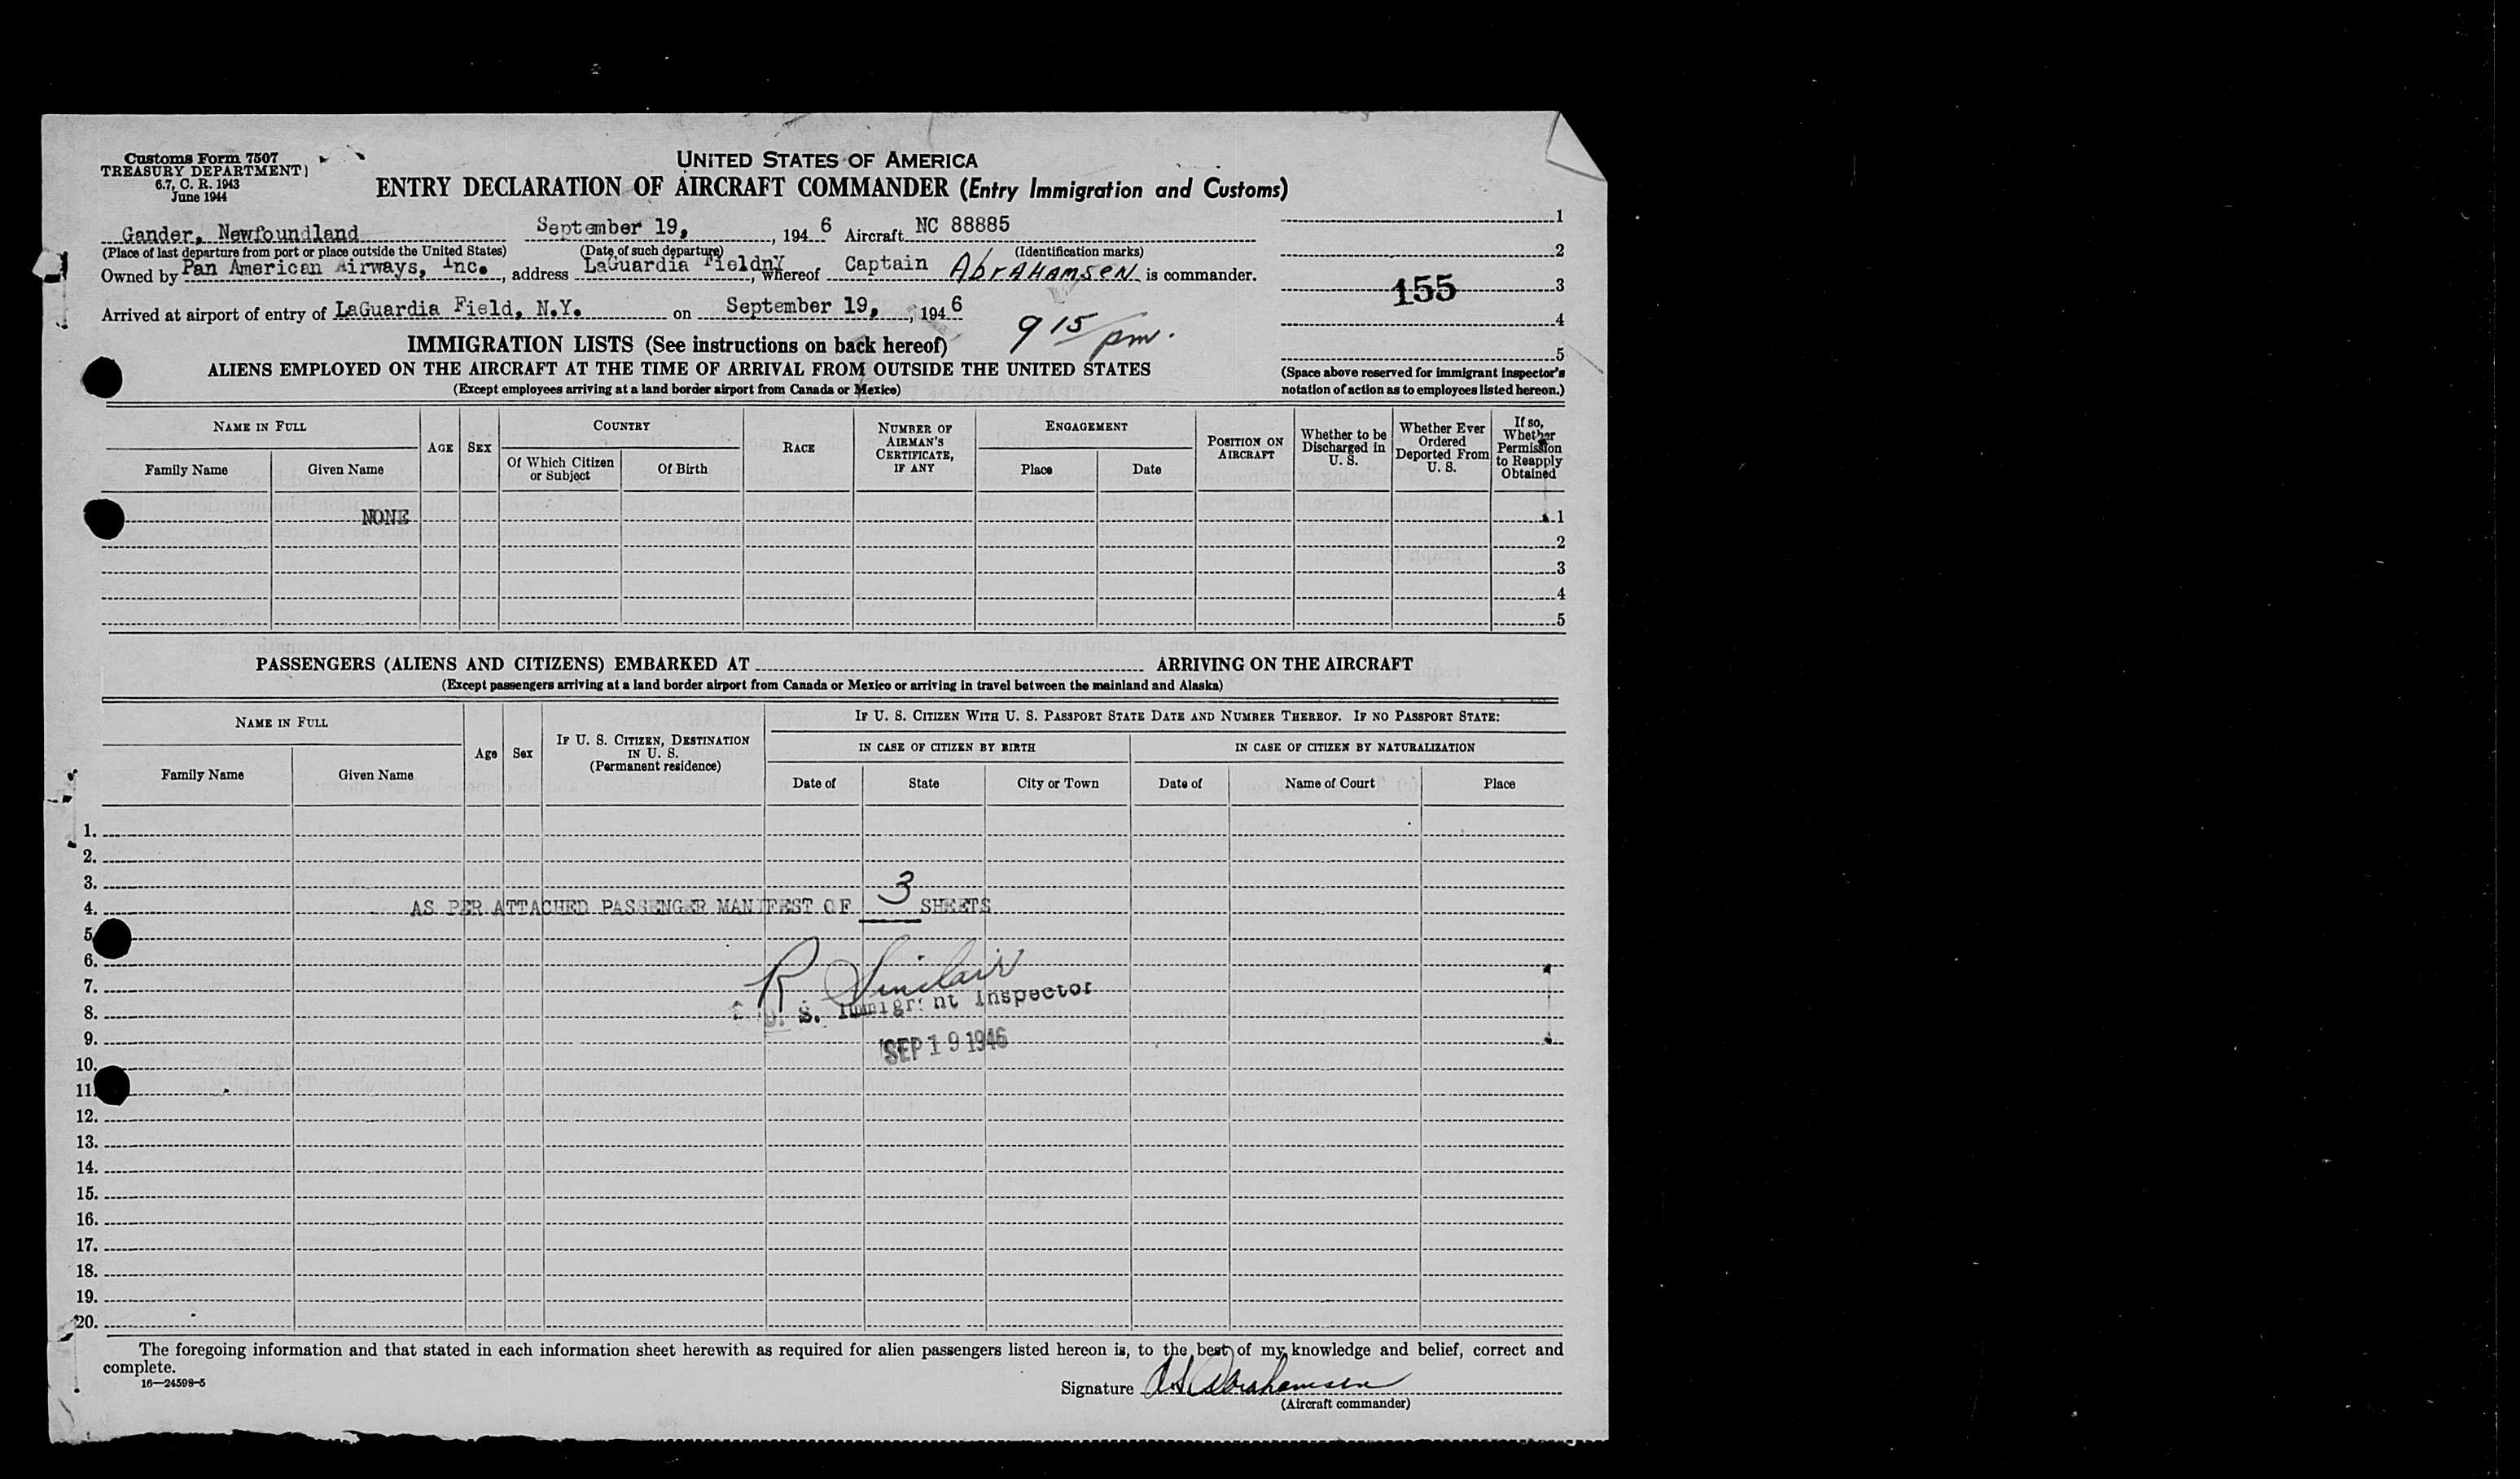 Customs Form 7507
TREASURY DEPARTMENT
6.7, C. R. 1943
June 1944
UNITED STATES OF AMERICA
ENTRY DECLARATION OF AIRCRAFT COMMANDER (Entry Immigration and Customs)
Gander, Newfoundland September 19, 1946 Aircraft NC 88885
(Place of last departure from port or place outside the United States) (Date of such departure) (Identification marks)
Owned by Pan American Airways, Inc., address LaGuardia Field NY, whereof Captain Abrahamsen is commander.
Arrived at airport of entry of LaGuardia Field, N.Y. on September 19, 1946
9 15/pm.
1
2
155 3
4
5
(Space above reserved for immigrant inspector's
notation of action as to employees listed hereon.)
IMMIGRATION LISTS (See instructions on back hereof)
ALIENS EMPLOYED ON THE AIRCRAFT AT THE TIME OF ARRIVAL FROM OUTSIDE THE UNITED STATES
(Except employees arriving at a land border airport from Canada or Mexico)
NAME IN FULL
Family Name Given Name
AGE SEX
COUNTRY
Of Which Citizen or Subject Of Birth
RACE
NUMBER OF AIRMAN'S CERTIFICATE, IF ANY
ENGAGEMENT
Place Date
POSITION ON AIRCRAFT
Whether to be Discharged in U. S.
Whether Ever Ordered Deported From U. S.
If so, Whether Permission to Reapply Obtained
NONE 1
2
3
4
5
PASSENGERS (ALIENS AND CITIZENS) EMBARKED AT ARRIVING ON THE AIRCRAFT
(Except passengers arriving at a land border airport from Canada or Mexico or arriving in travel between the mainland and Alaska)
NAME IN FULL
Family Name Given Name
Age Sex
IF U. S. CITIZEN, DESTINATION IN U. S.
(Permanent residence)
IF U. S. CITIZEN WITH U. S. PASSPORT STATE DATE AND NUMBER THEREOF. IF NO PASSPORT STATE:
IN CASE OF CITIZEN BY BIRTH IN CASE OF CITIZEN BY NATURALIZATION
Date of State City or Town Date of Name of Court Place
1.
2.
3.
4. AS PER ATTACHED PASSENGER MANIFEST OF 3 SHEETS
5.
6.
R Sinclair
7.
8. U. S. Immigrant Inspector
9. SEP 19 1946
10.
11.
12.
13.
14.
15.
16.
17.
18.
19.
20.
The foregoing information and that stated in each information sheet herewith as required for alien passengers listed hereon is, to the best of my knowledge and belief, correct and
complete.
16—24598-5
Signature Abrahamsen
(Aircraft commander)